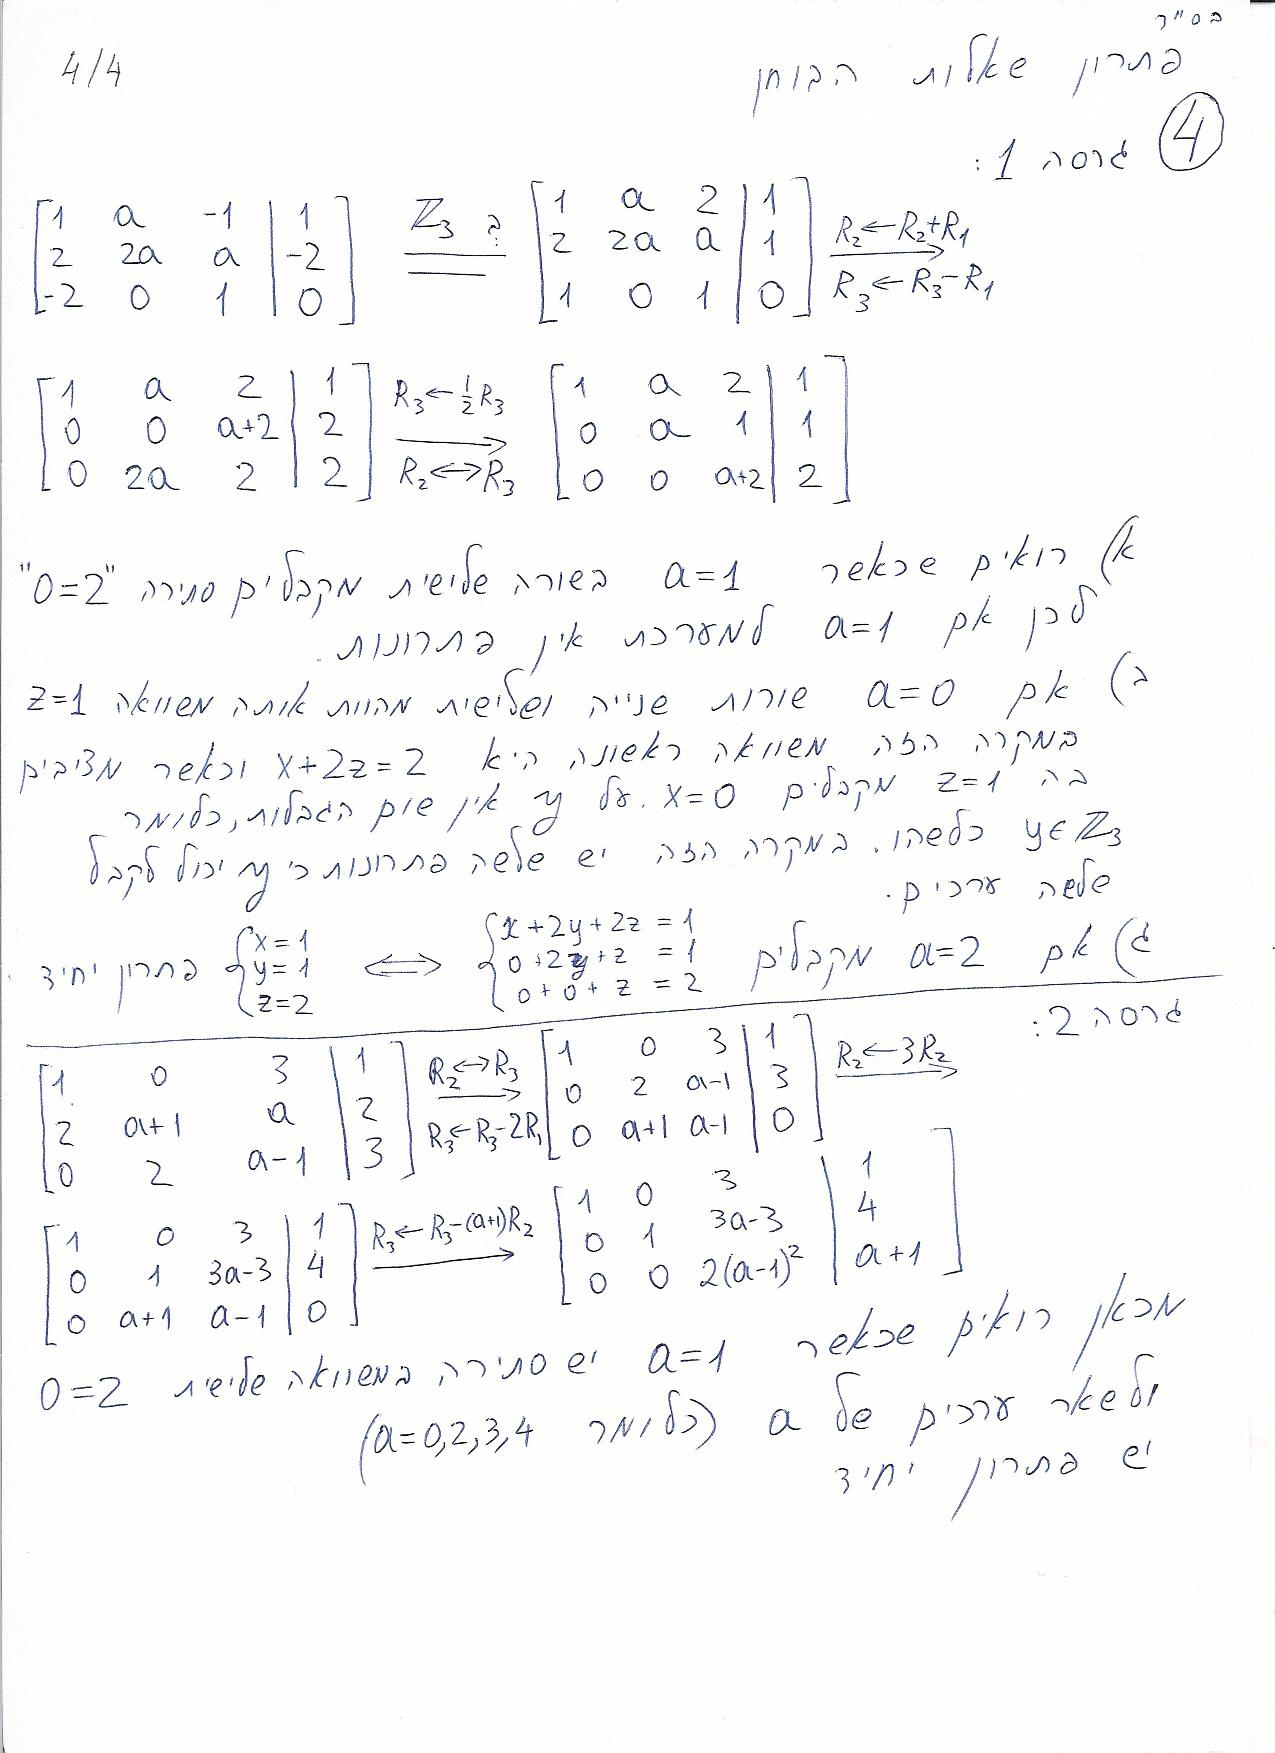 בס"ד
4/4
פתרון שאלות הבוחן
④
גרסה 1:
[1 a -1 | 1; 2 2a a | -2; -2 0 1 | 0] ב Z₃ = [1 a 2 | 1; 2 2a a | 1; 1 0 1 | 0] R₂←R₂+R₁ R₃←R₃-R₁ →
[1 a 2 | 1; 0 0 a+2 | 2; 0 2a 2 | 2] R₃←½R₃ R₂↔R₃ → [1 a 2 | 1; 0 a 1 | 1; 0 0 a+2 | 2]
א) רואים שכאשר a=1 בשורה שלישית מקבלים סתירה "0=2"
לכן אם a=1 למערכת אין פתרונות.
ב) אם a=0 שורות שנייה ושלישית מהוות אותה משוואה z=1
במקרה הזה משוואה ראשונה היא x+2z=2 וכאשר מציבים
בה z=1 מקבלים x=0. על y אין שום הגבלות, כלומר
y∈Z₃ כלשהו. במקרה הזה יש שלשה פתרונות כי y יכול לקבל
שלשה ערכים.
ג) אם a=2 מקבלים {x+2y+2z=1; 0+2y+z=1; 0+0+z=2 ⇔ {x=1; y=1; z=2 פתרון יחיד.
גרסה 2:
[1 0 3 | 1; 2 a+1 a | 2; 0 2 a-1 | 3] R₂↔R₃ R₃←R₃-2R₁ → [1 0 3 | 1; 0 2 a-1 | 3; 0 a+1 a-1 | 0] R₂←3R₂ →
[1 0 3 | 1; 0 1 3a-3 | 4; 0 a+1 a-1 | 0] R₃←R₃-(a+1)R₂ → [1 0 3 | 1; 0 1 3a-3 | 4; 0 0 2(a-1)² | a+1]
מכאן רואים שכאשר a=1 יש סתירה במשוואה שלישית 0=2
ולשאר ערכים של a (כלומר a=0,2,3,4)
יש פתרון יחיד